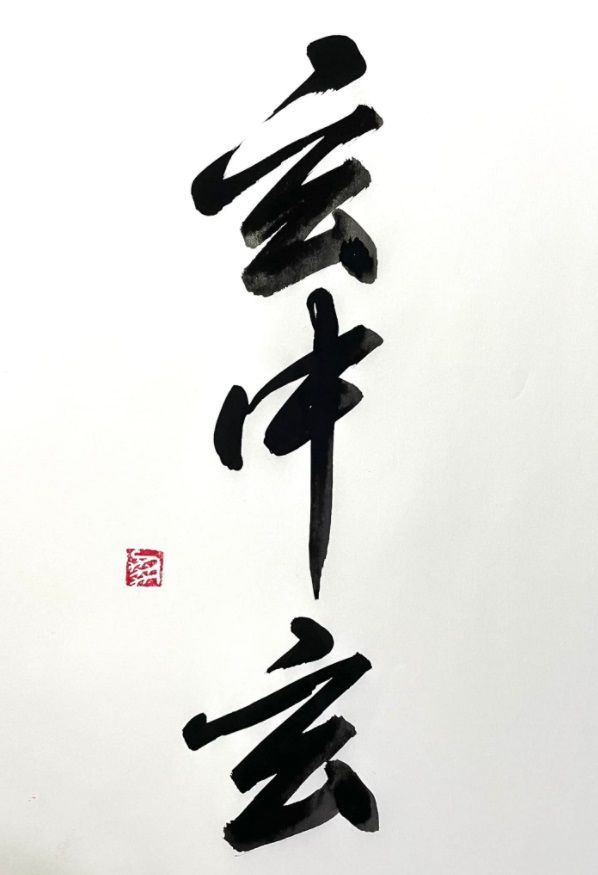 玄中玄